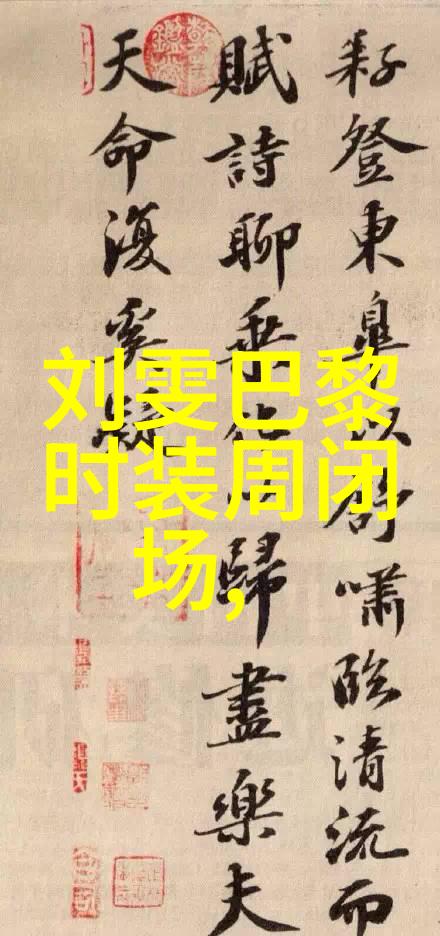 刘雯巴黎
时装周闭
场,
耔登東皐以舒嘯臨清流而
賦詩聊乘化以歸盡樂夫
天命復奚疑